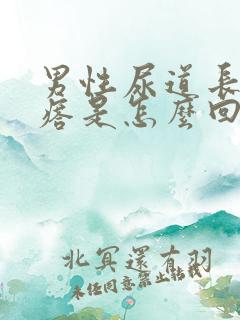 男性尿道長
痞是怎麽回
北冥還有羽
未經同意禁止轉載